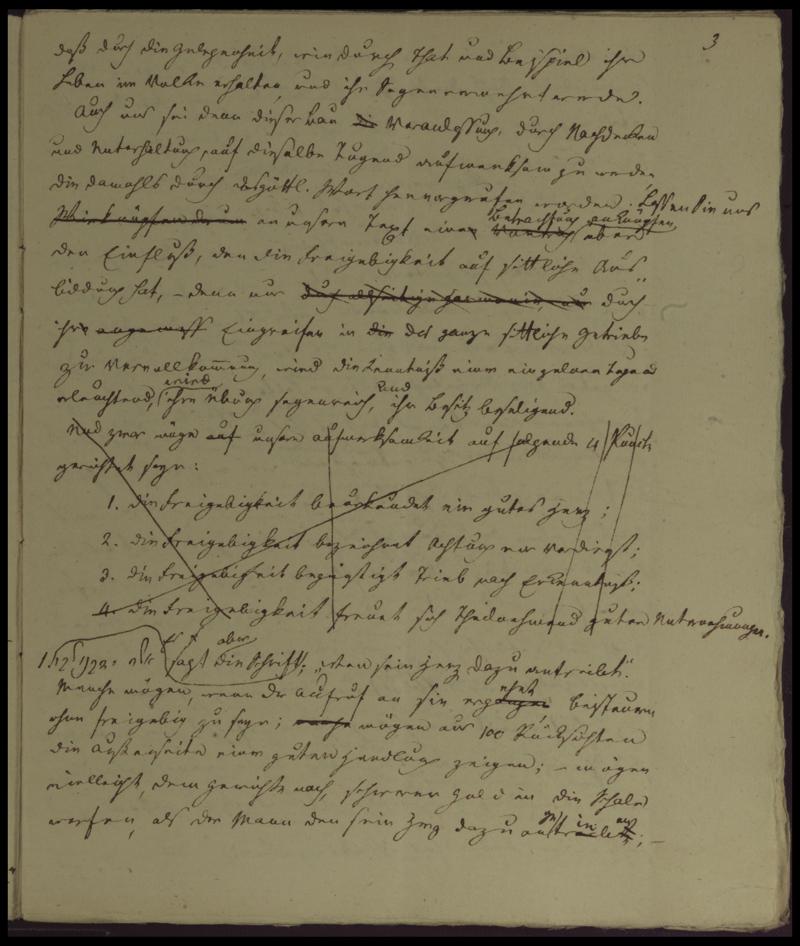 3
daß durch die Gelegenheit, wie durch That und Beispiel ihr
Leben im Volke erhalten, und ihr Segen vermehrt werde.
Auch uns sei denn dieser Bau die Veranlassung, durch Nachdenken
und Unterhaltung, auf dieselbe Tugend aufmerksam zu werden
die damahls durch das göttl. Wort hervorgerufen worden. Lassen Sie uns
an unsern Text eine Betrachtung anknüpfen über
den Einfluß, den die Freigebigkeit auf sittliche Aus-
bildung hat, – denn nur durch
ihr Eingreifen in die das ganze sittliche Getriebe
zur Vervollkommnung, wird die Kenntniß einer einzelnen Tugend
erleuchtend, wird ihre Übung segenreich, und ihr Besitz beseligend.
Und zwar möge auf unsere Aufmerksamkeit auf folgende 4 Punkte
gerichtet seyn:
1. die Freigebigkeit beurkundet ein gutes Herz;
2. die Freigebigkeit bezeichnet Achtung vor Verdienst;
3. die Freigebigkeit Trieb nach Erkenntniß;
4. die Freigebigkeit freuet sich theilnehmend guter Unternehmungen.
sagt aber die Schrift: „den sein Herz dazu antreibt“.
Manche mögen, wenn der Aufruf an sie ergehet beisteuern
ohne freigebig zu seyn; mögen aus 100 Rücksichten
die Außenseite einer guten Handlung zeigen; – mögen
vielleicht, dem Gewichte nach, schwerer Gold in die Schale
werfen, als der Mann den sein Herz dazu